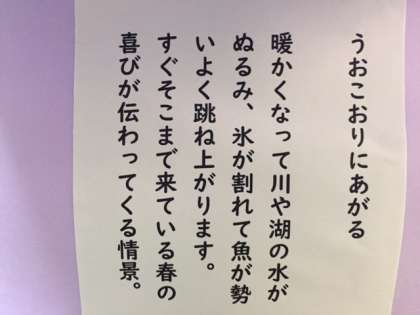 うおこおりにあがる
暖かくなって川や湖の水が
ぬるみ、氷が割れて魚が勢
いよく跳ね上がります。
すぐそこまで来ている春の
喜びが伝わってくる情景。